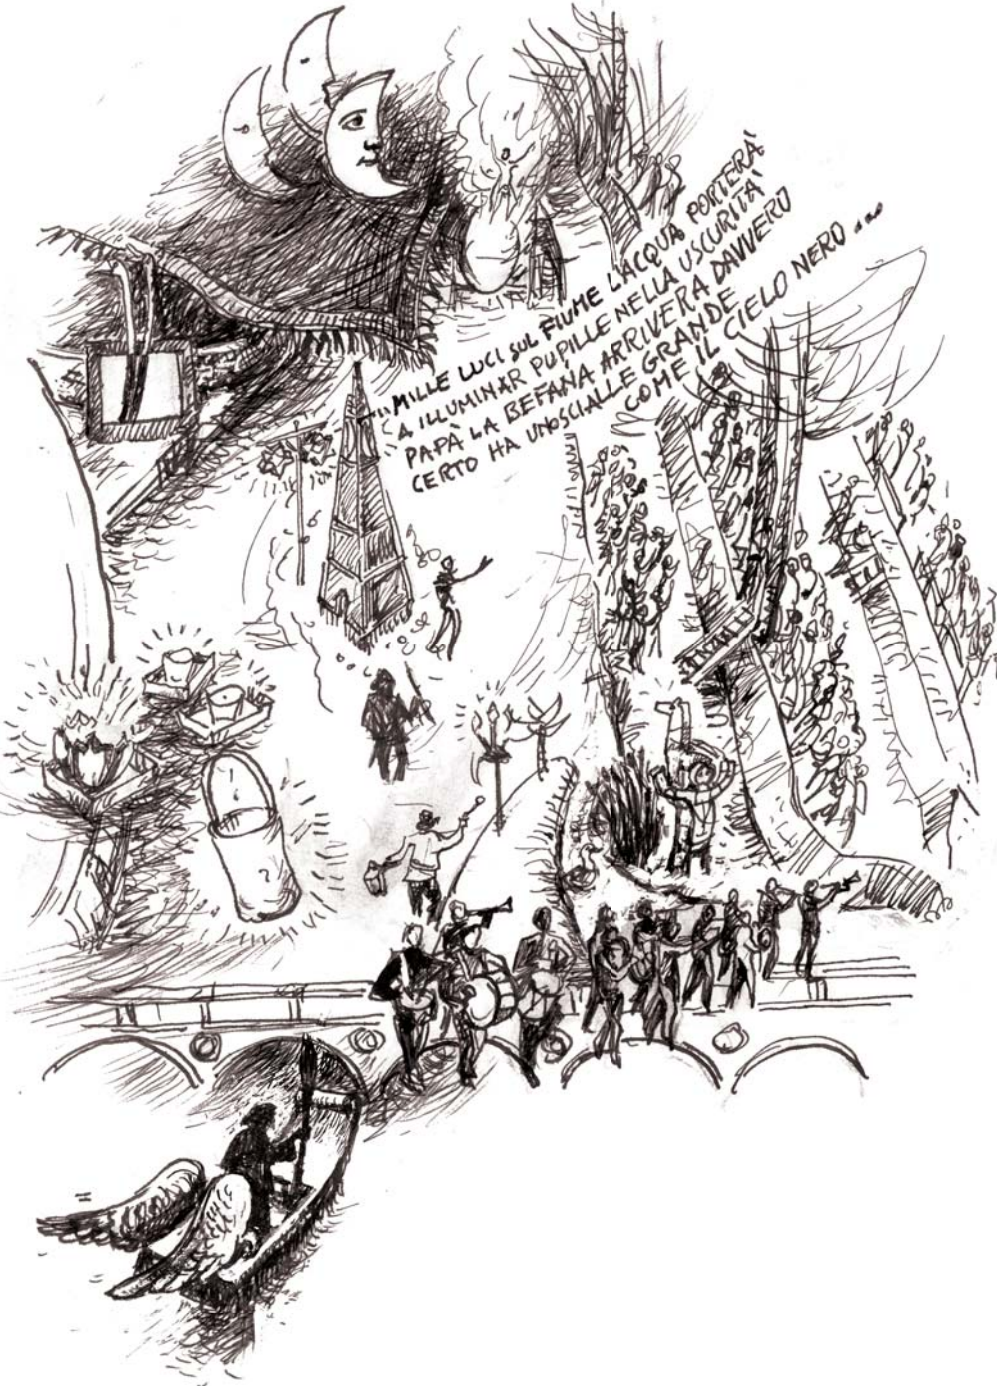 "MILLE LUCI SUL FIUME L'ACQUA PORTERÀ
A ILLUMINAR PUPILLE NELLA USCURITÀ
PAPÀ LA BEFANA ARRIVERÀ DAVVERO
CERTO HA UNO SCIALLE GRANDE
COME IL CIELO NERO ...